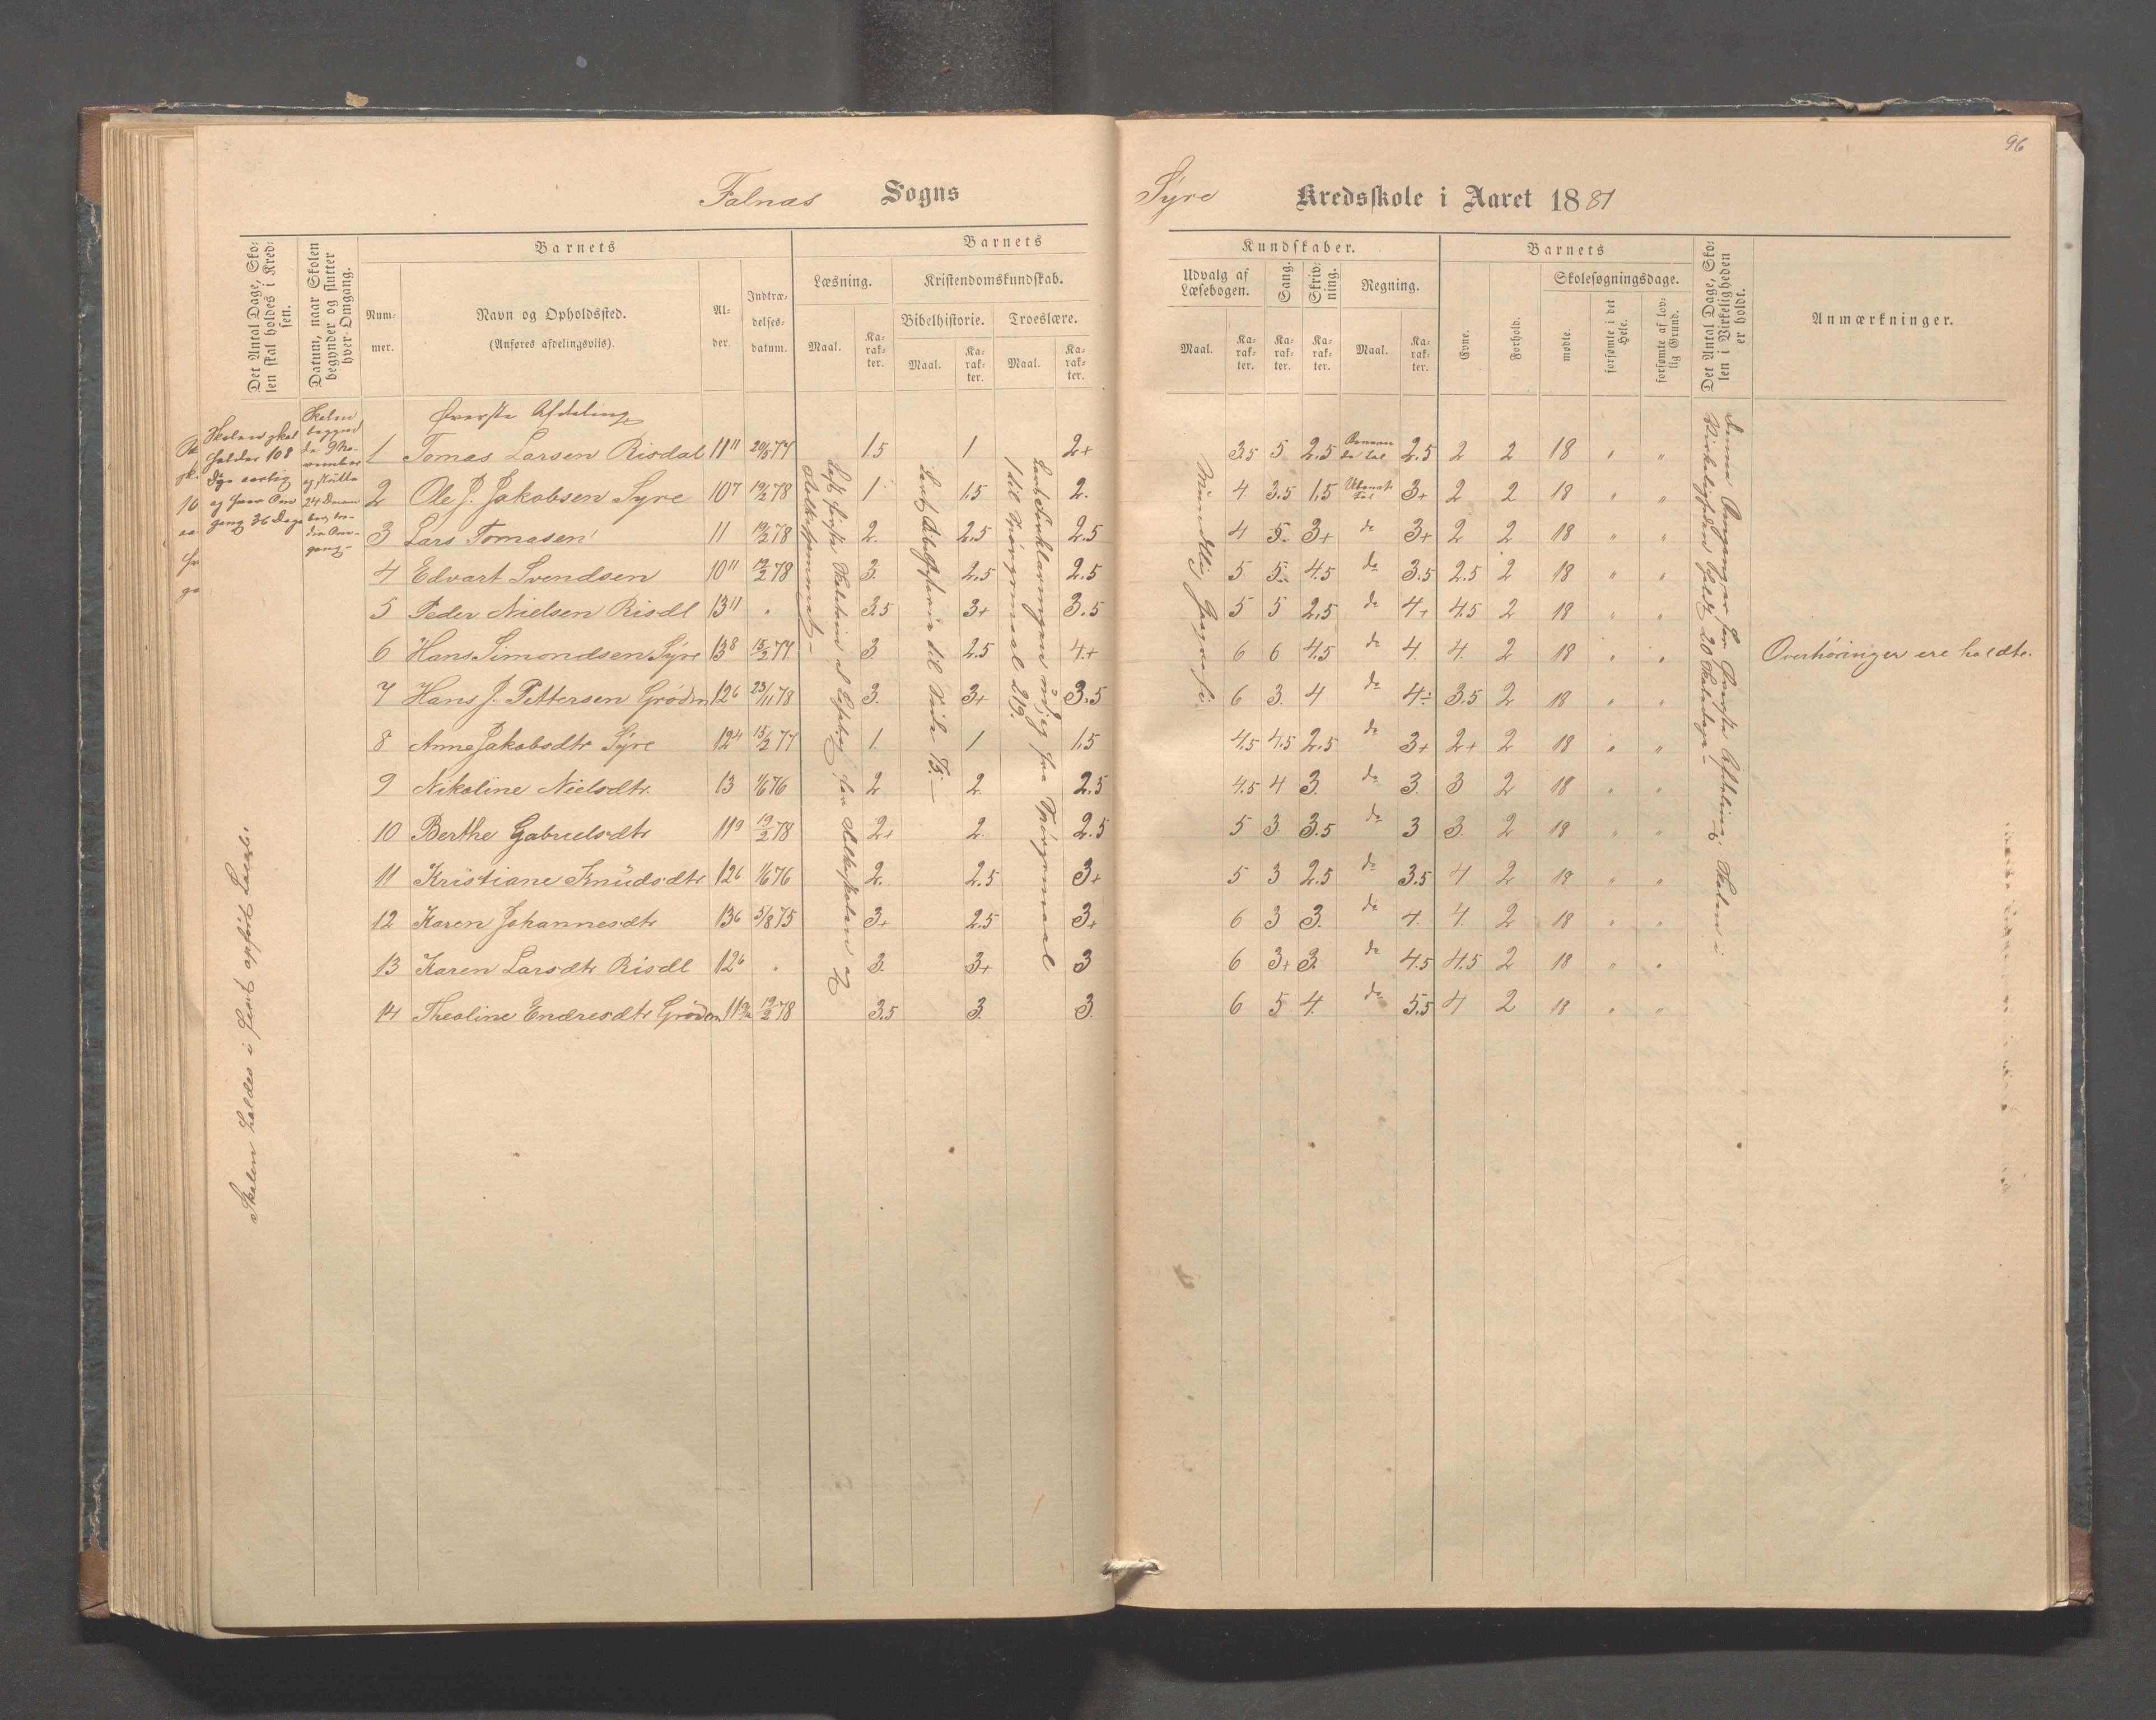 96
Falnæs Sogns
Syre Kredsskole i Aaret 1881
Det Antal Dage, Skolen skal holdes i Kredsen.
Datum, naar Skolen begynder og slutter hver Omgang.
Barnets
Nummer.
Navn og Opholdssted.
(Anføres afdelingsviis).
Alder.
Indtrædelsesdatum.
Barnets
Læsning.
Kristendomskundskab.
Bibelhistorie.
Troeslære.
Maal.
Karakter.
Maal.
Karakter.
Maal.
Karakter.
Kundskaber.
Udvalg af Læsebogen.
Sang.
Skrivning.
Regning.
Maal.
Karakter.
Karakter.
Karakter.
Maal.
Karakter.
Barnets
Evne.
Forhold.
Skolesøgningsdage.
mødte.
forsømte i det Hele.
forsømte af lovlig Grund.
Det Antal Dage, Skolen i Virkeligheden er holdt.
Anmærkninger.
Skolen skal
holdes 108
Dge aarlig
og hver Om
gang 36 Dage
Skolen
begynd
te 9 No-
vember
og slutter
24 Decem
ber, tre-
die Om-
gang
Øverste Afdeling
1 Tomas Larsen Risdal 11 11 20/5 77 1.5 1 2+ 3.5 5 2.5 2.5 2 2 18 " "
2 Ole J. Jakobsen Syre 10 7 19/2 78 1 1.5 2. 4. 3.5 1.5 Ubenævt Tal 3+ 2 2 18 " "
3 Lars Tomasen 11 19/2 78 2. 2.5 2.5 4 5. 3+ do 3+ 2 2 18 " "
4 Edvart Svendsen 10 11 19/2 78 3. 2.5 2.5 5 5. 4.5 do 3.5 2.5 2 18 " "
5 Peder Nielsen Risdl 13 11 " 3.5 3+ 3.5 5 5 2.5 do 4+ 4.5 2 18 " "
6 Hans Simondsen Syre 13 8 15/2 77 3. 2.5 4+ 6 6 4.5 do 4. 4. 2 18 " " Overhøringer ere holdte.
7 Hans J. Pettersen Grøden 12 6 23/11 78 3. 3+ 3.5 6 3. 4 do 4÷ 3.5 2 18 " "
8 Anne Jakobsdtr Syre 12 4 15/2 77 1. 1 1.5 4.5 4.5 2.5 do 3+ 2+ 2 18 " "
9 Nikoline Nielsdtr. 13 1/6 76 2 2. 2.5 4.5 4 3. do 3. 3 2 18 " "
10 Berthe Gabrielsdtr 11 9 19/2 78 2+ 2. 2.5 5 3. 3.5 do 3 3. 2 18 " "
11 Kristiane Knudsdtr 12 6 1/6 76 2. 2.5 3+ 5 3 2.5 do 3.5 4 2 18 " "
12 Karen Johannesdtr 13 6 5/8 75 3+ 2.5 3+ 6 3 3. do 4. 4. 2 18 " "
13 Karen Larsdtr Risdl 12 6 " 3. 3+ 3 6 3+ 3. do 4.5 4.5 2 18 " "
14 Theoline Endresdtr Grøden 11 19/2 78 3.5 3. 3 6 5 4. do 5.5 4 2 18 " "
Læst første Skoletrin af Læsebog for Folkeskolen og
Lært Bibelhistorie til Side 75.
Lært Forklaringen udjeg fra Spørgsmaal
1 til Spørgsmaal 219.
Mundtlig Geografi
Denne Omgang er for Øverste Afdeling Skolen i
Virkeligheden holdt 20 Skoledage
Skolen holdes i fast opført Locale.